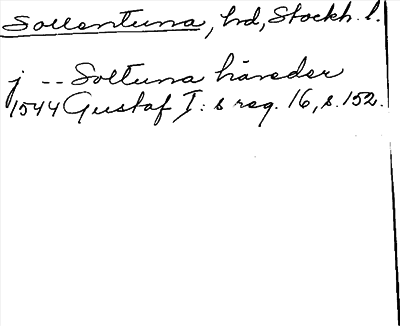 Sollentuna, hd, Stockh. l.
j -- Soltuna häreder
1544 Gustaf I:s reg. 16, s. 152.